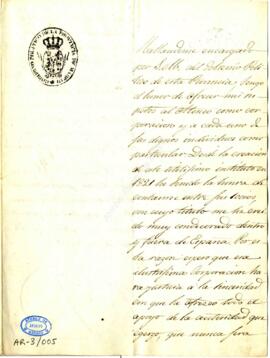 GOBIERNO POLITICO DE LA PROVINCIA DE MADRID
Hallandome encargado
por S.M. del Gobierno Poli-
tico de esta Provincia tengo
el honor de ofrecer mis res-
petos al Ateneo como cor-
poracion y a cada uno de
sus dignos individuos como
particular. Desde la creacion
de este utilisimo instituto en
1821 he tenido la honra de
contarme entre sus socios,
con cuyo titulo me ha creí-
do muy condecorado dentro
y fuera de España. Por es-
ta razon espero que esa
ilustrisima Corporacion ha-
ra justicia a la sinceridad
con que la ofrezco todo el
apoyo de la autoridad que
ejerzo, que nunca sera
AR-3/005